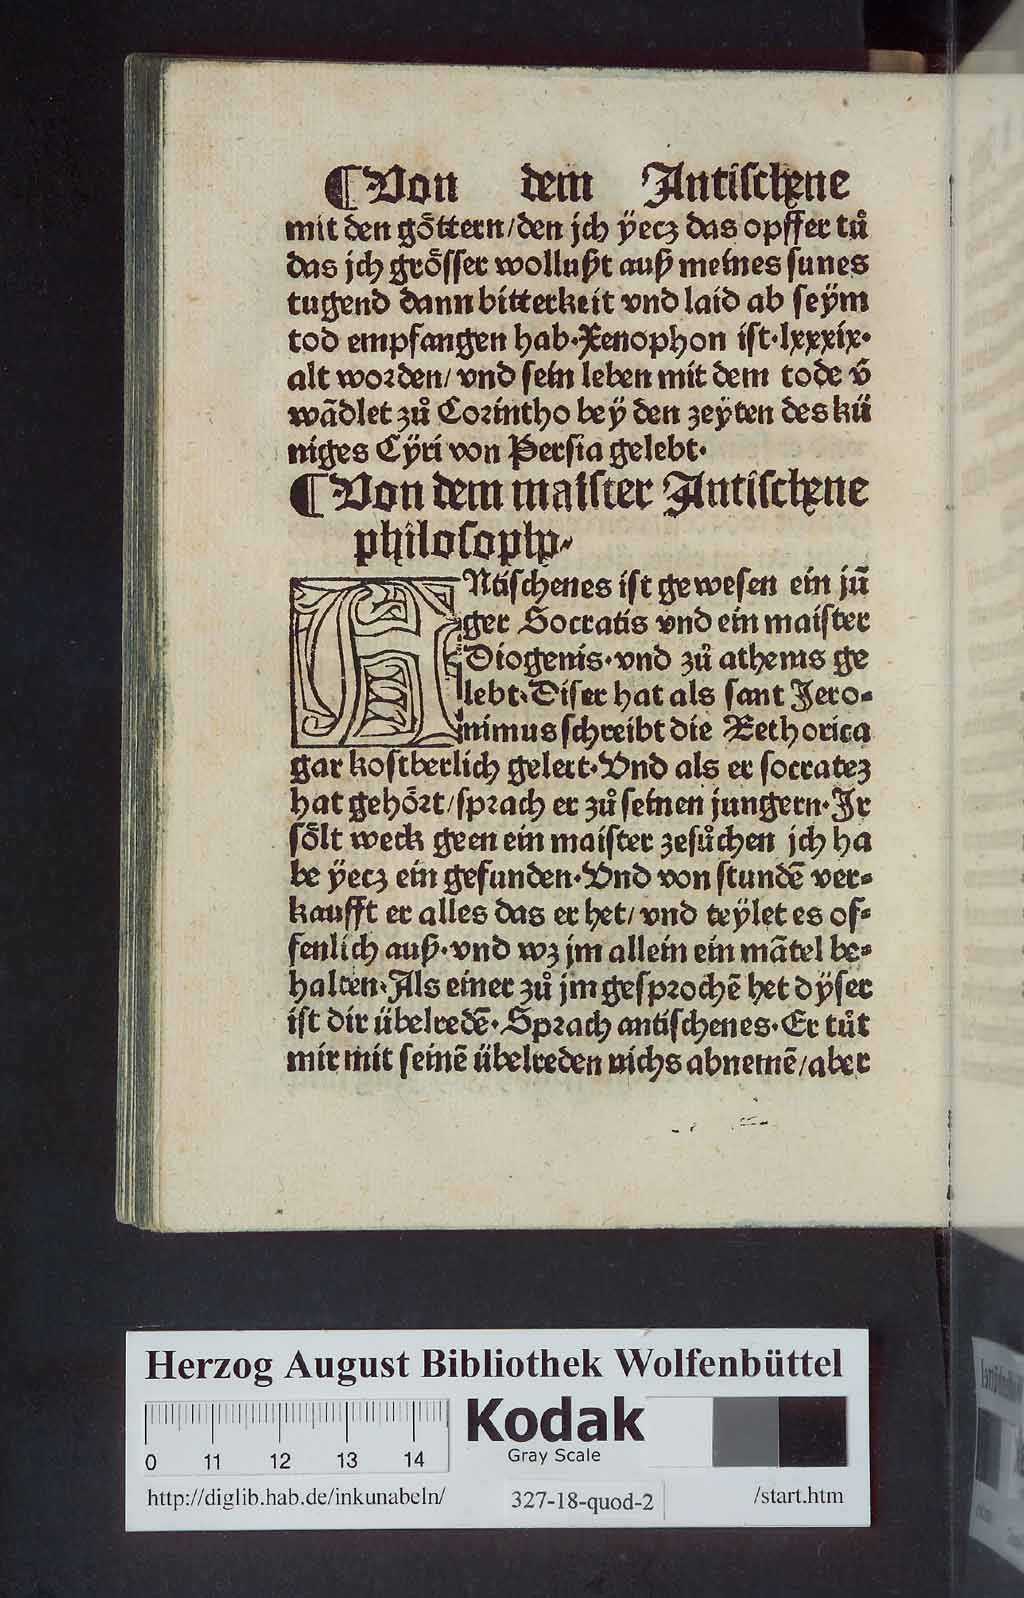 ¶ Von dem Antischene
mit den goͤttern/den jch ÿecz das opffer tuͦ
das jch groͤsser wollußt auß meines sunes
tugend dann bitterkeit vnd laid ab seÿm
tod empfangen hab·Xenophon ist·lxxxix·
alt worden/ vnd sein leben mit dem tode vñ
wãdlet zuͦ Corintho beÿ den zeÿten des kü
niges Cÿri von Persia gelebt·
¶ Von dem maister Antischene
philosopho·
ANtischenes ist gewesen ein jũ
ger Socratis vnd ein maister
Diogenis·vnd zuͦ athenis ge
lebt·Diser hat als sant Jero-
nimus schreibt die Rethorica
gar kostberlich gelert·Vnd als er socratez
hat gehoͤrt/sprach er zuͦ seinen jungern·Jr
soͤlt weck geen ein maister zesuͦchen jch ha
be ÿecz ein gefunden·Vnd von stundẽ ver-
kaufft er alles das er het/ vnd teÿlet es of-
fenlich auß·vnd wz jm allein ein mãtel be-
halten·Als einer zuͦ jm gesprochẽ het dÿser
ist dir übelredẽ·Sprach antischenes·Er tuͦt
mir mit seinẽ übelreden nichs abnemẽ/aber
Herzog August Bibliothek Wolfenbüttel
Kodak
Gray Scale
0 11 12 13 14
http://diglib.hab.de/inkunabeln/ 327-18-quod-2 /start.htm